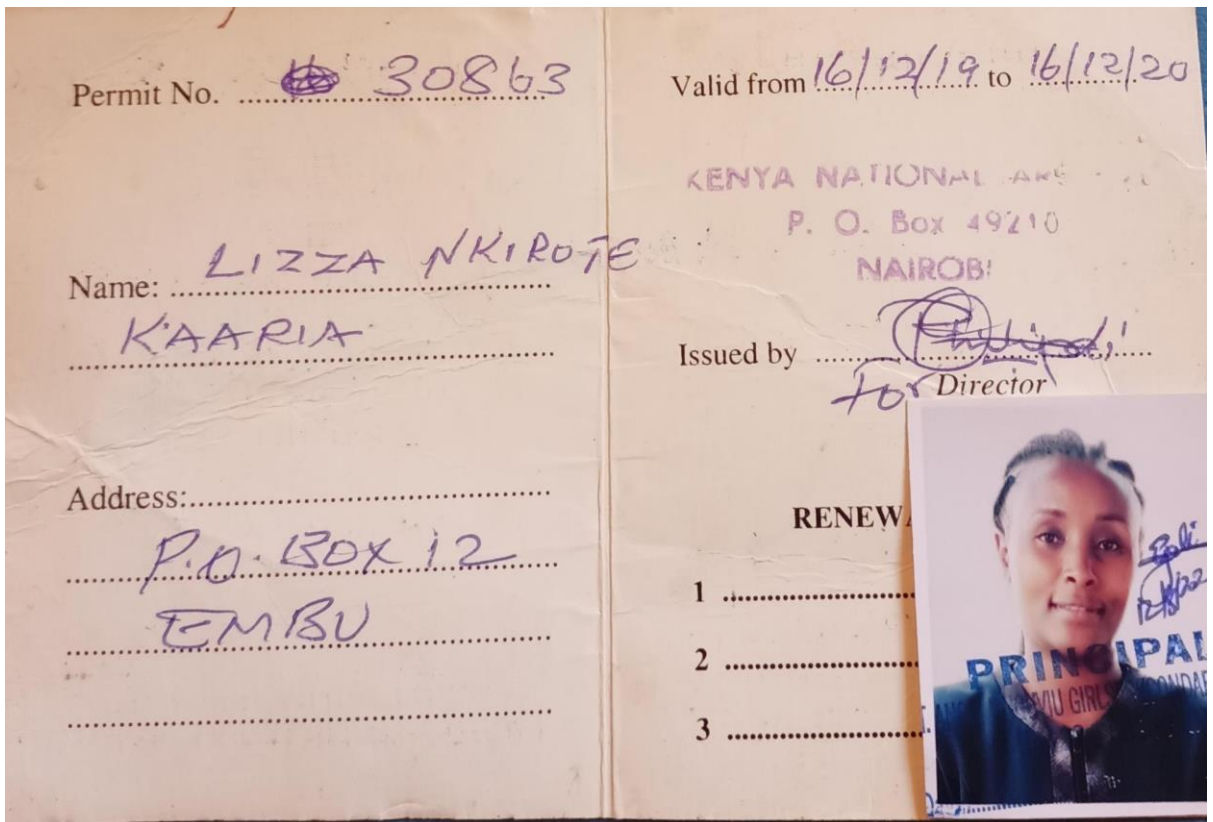 Permit No. 30863
Name: LIZZA NKIROTE
KAARIA
Address:
P.O. BOX 12
EMBU
Valid from 16/12/19 to 16/12/20
KENYA NATIONAL
P. O. Box 49210
NAIROBI
Issued by
For Director
RENEWA
1
2
3
PRINCIPAL
GIRLS